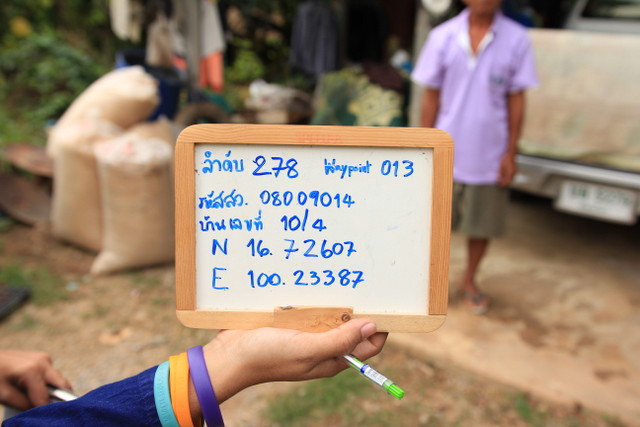 ลำดับ 278 Waypoint 013
รหัสสว. 08009014
บ้านเลขที่ 10/4
N 16.72607
E 100.23387